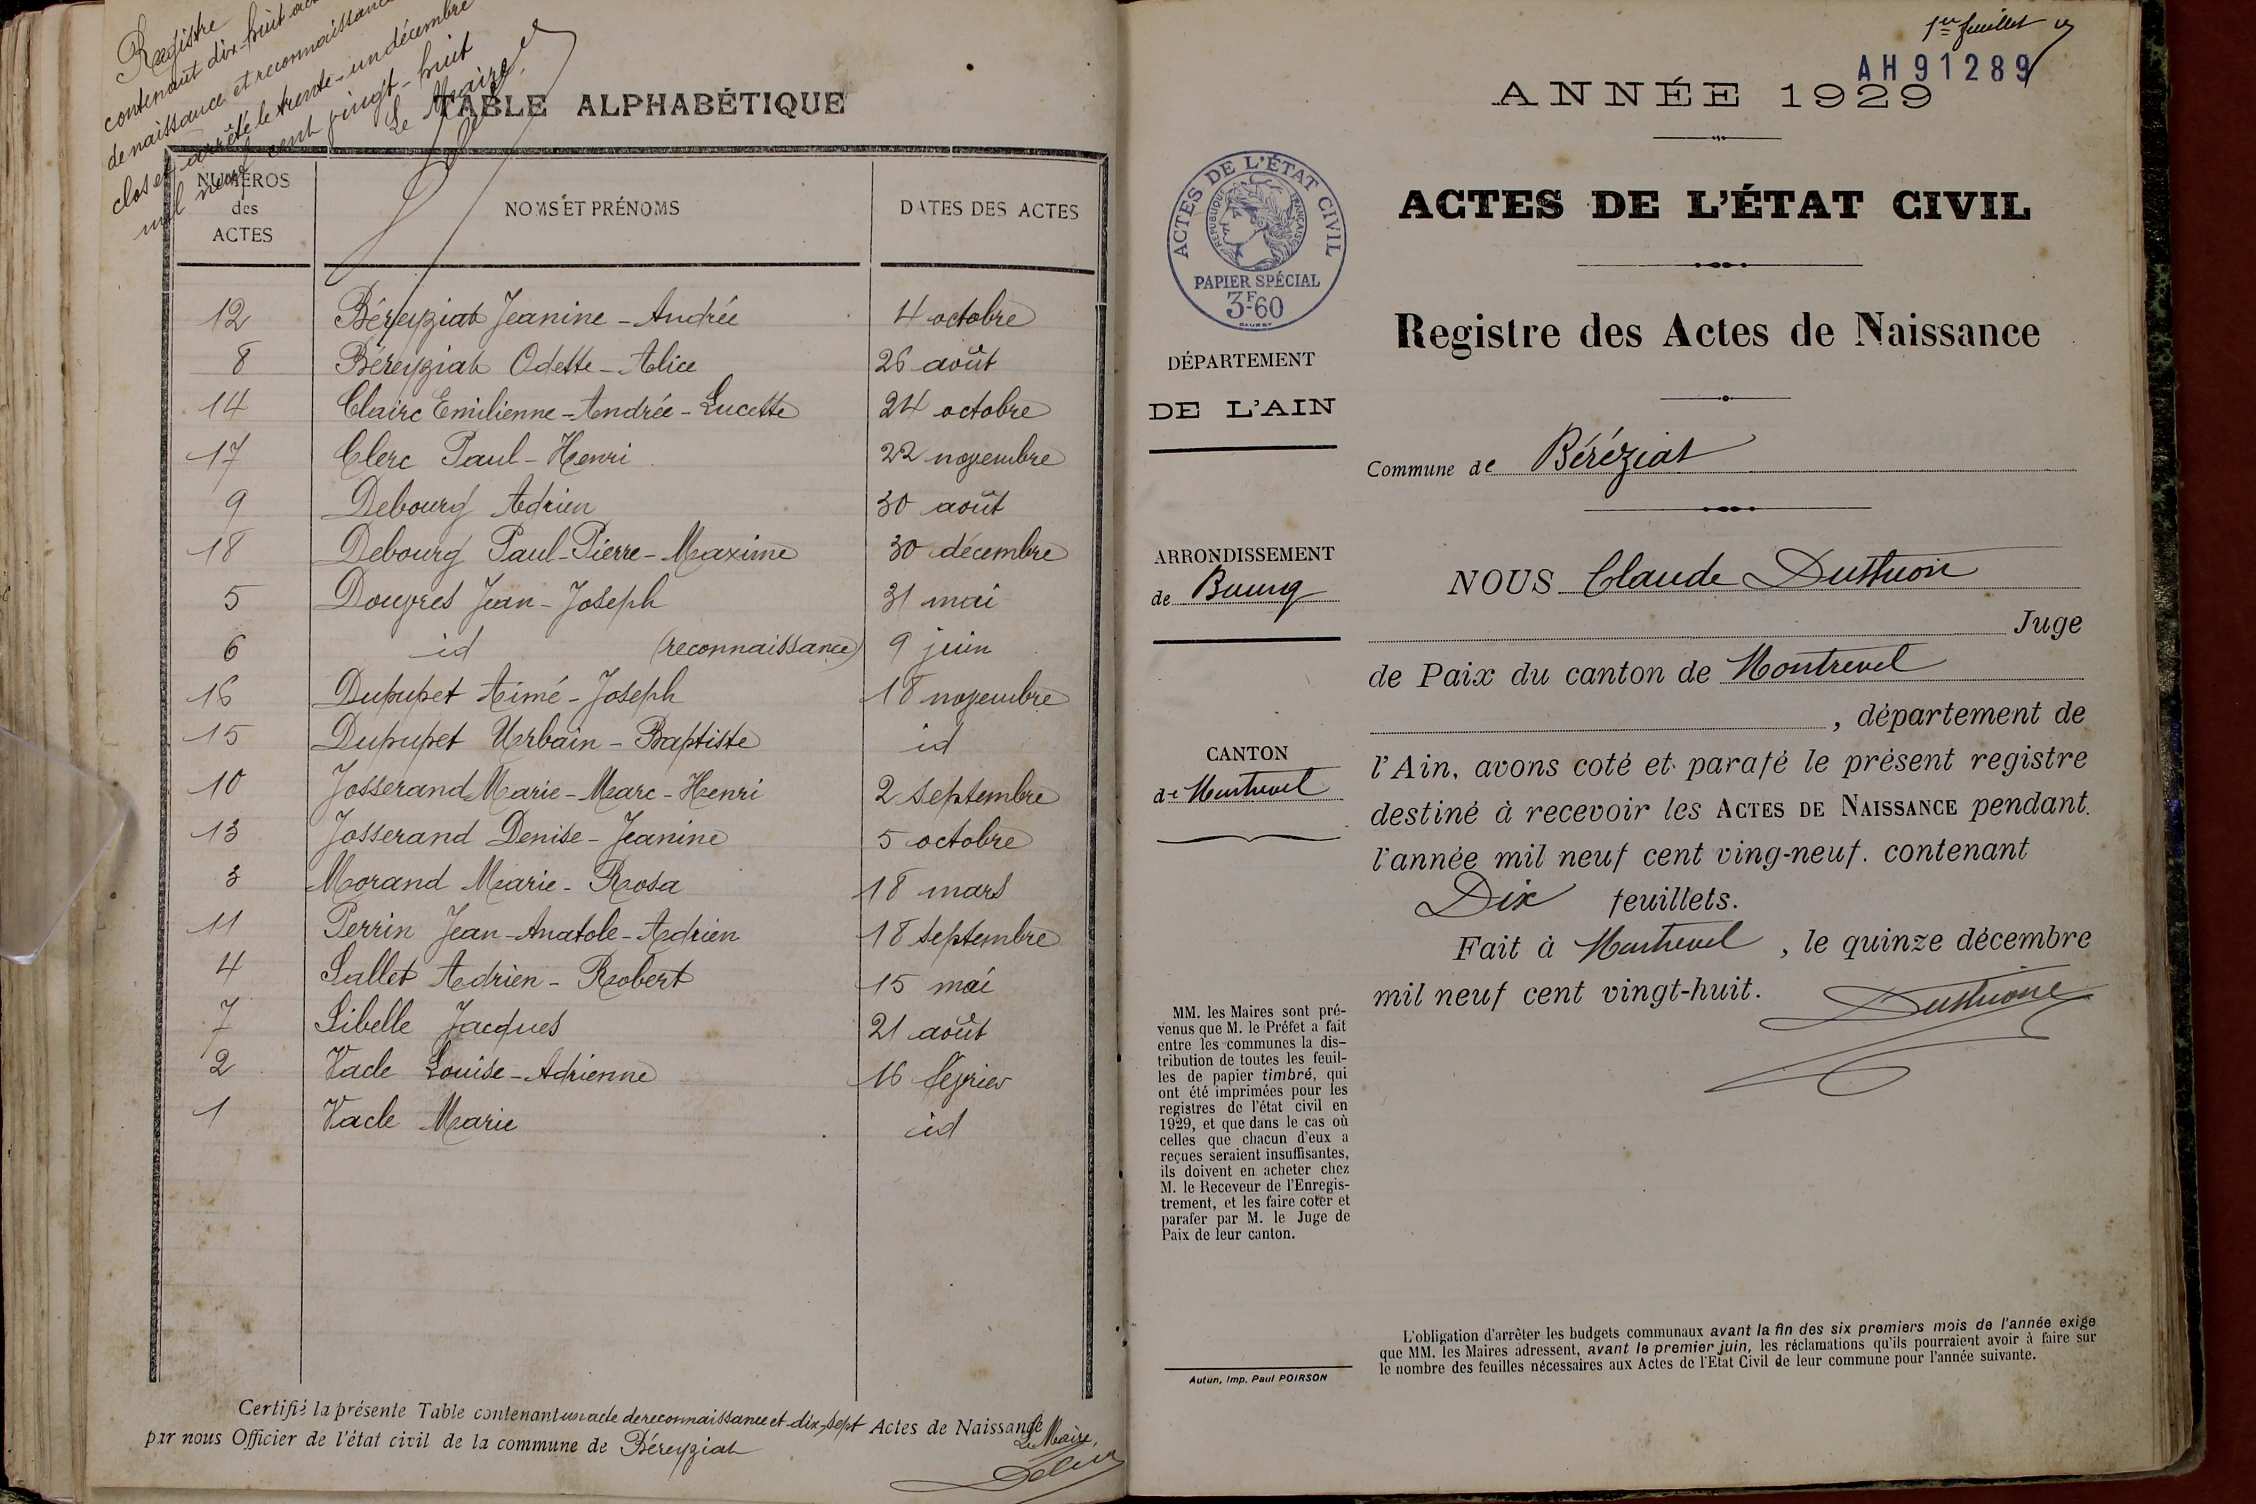 Registre
contenant dix-huit
de naissance et reconnaissance
clos et arrêté le trente-un décembre
mil neuf cent vingt-huit
Le Maire,
TABLE ALPHABÉTIQUE
NUMÉROS des ACTES
NOMS ET PRÉNOMS
DATES DES ACTES
12 Béreyziat Jeanine-Andrée 4 octobre
8 Béreyziat Odette-Alice 26 août
14 Claire Emilienne-Andrée-Lucette 24 octobre
17 Clerc Paul-Henri 22 novembre
9 Debourg Adrien 30 août
18 Debourg Paul-Pierre-Maxime 30 décembre
5 Douvres Jean-Joseph 31 mai
6 id (reconnaissance) 9 juin
16 Dupupet Aimé-Joseph 18 novembre
15 Dupupet Urbain-Baptiste id
10 Josserand Marie-Marc-Henri 2 septembre
13 Josserand Denise-Jeanine 5 octobre
3 Morand Marie-Rosa 18 mars
11 Perrin Jean-Anatole-Adrien 18 septembre
4 Sallet Adrien-Robert 15 mai
7 Sibelle Jacques 21 août
2 Vacle Louise-Adrienne 16 février
1 Vacle Marie id
Certifié la présente Table contenant un acte de reconnaissance et dix-sept Actes de Naissance
par nous Officier de l'état civil de la commune de Béreyziat
Le Maire,
1er feuillet
AH 91289
ANNÉE 1929
ACTES DE L'ÉTAT CIVIL
RÉPUBLIQUE FRANÇAISE
PAPIER SPÉCIAL
3F60
ACTES DE L'ÉTAT CIVIL
Registre des Actes de Naissance
DÉPARTEMENT
DE L'AIN
Commune de Béréziat
ARRONDISSEMENT
de Bourg
NOUS Claude Duthion
Juge
de Paix du canton de Montrevel
, département de
CANTON
de Montrevel
l'Ain, avons coté et parafé le présent registre
destiné à recevoir les ACTES DE NAISSANCE pendant
l'année mil neuf cent ving-neuf. contenant
Dix feuillets.
Fait à Montrevel , le quinze décembre
mil neuf cent vingt-huit.
MM. les Maires sont pré-
venus que M. le Préfet a fait
entre les communes la dis-
tribution de toutes les feuil-
les de papier timbré, qui
ont été imprimées pour les
registres de l'état civil en
1929, et que dans le cas où
celles que chacun d'eux a
reçues seraient insuffisantes,
ils doivent en acheter chez
M. le Receveur de l'Enregis-
trement, et les faire coter et
parafer par M. le Juge de
Paix de leur canton.
Autun, Imp. Paul POIRSON
L'obligation d'arrêter les budgets communaux avant la fin des six premiers mois de l'année exige
que MM. les Maires adressent, avant le premier juin, les réclamations qu'ils pourraient avoir à faire sur
le nombre des feuilles nécessaires aux Actes de l'État Civil de leur commune pour l'année suivante.